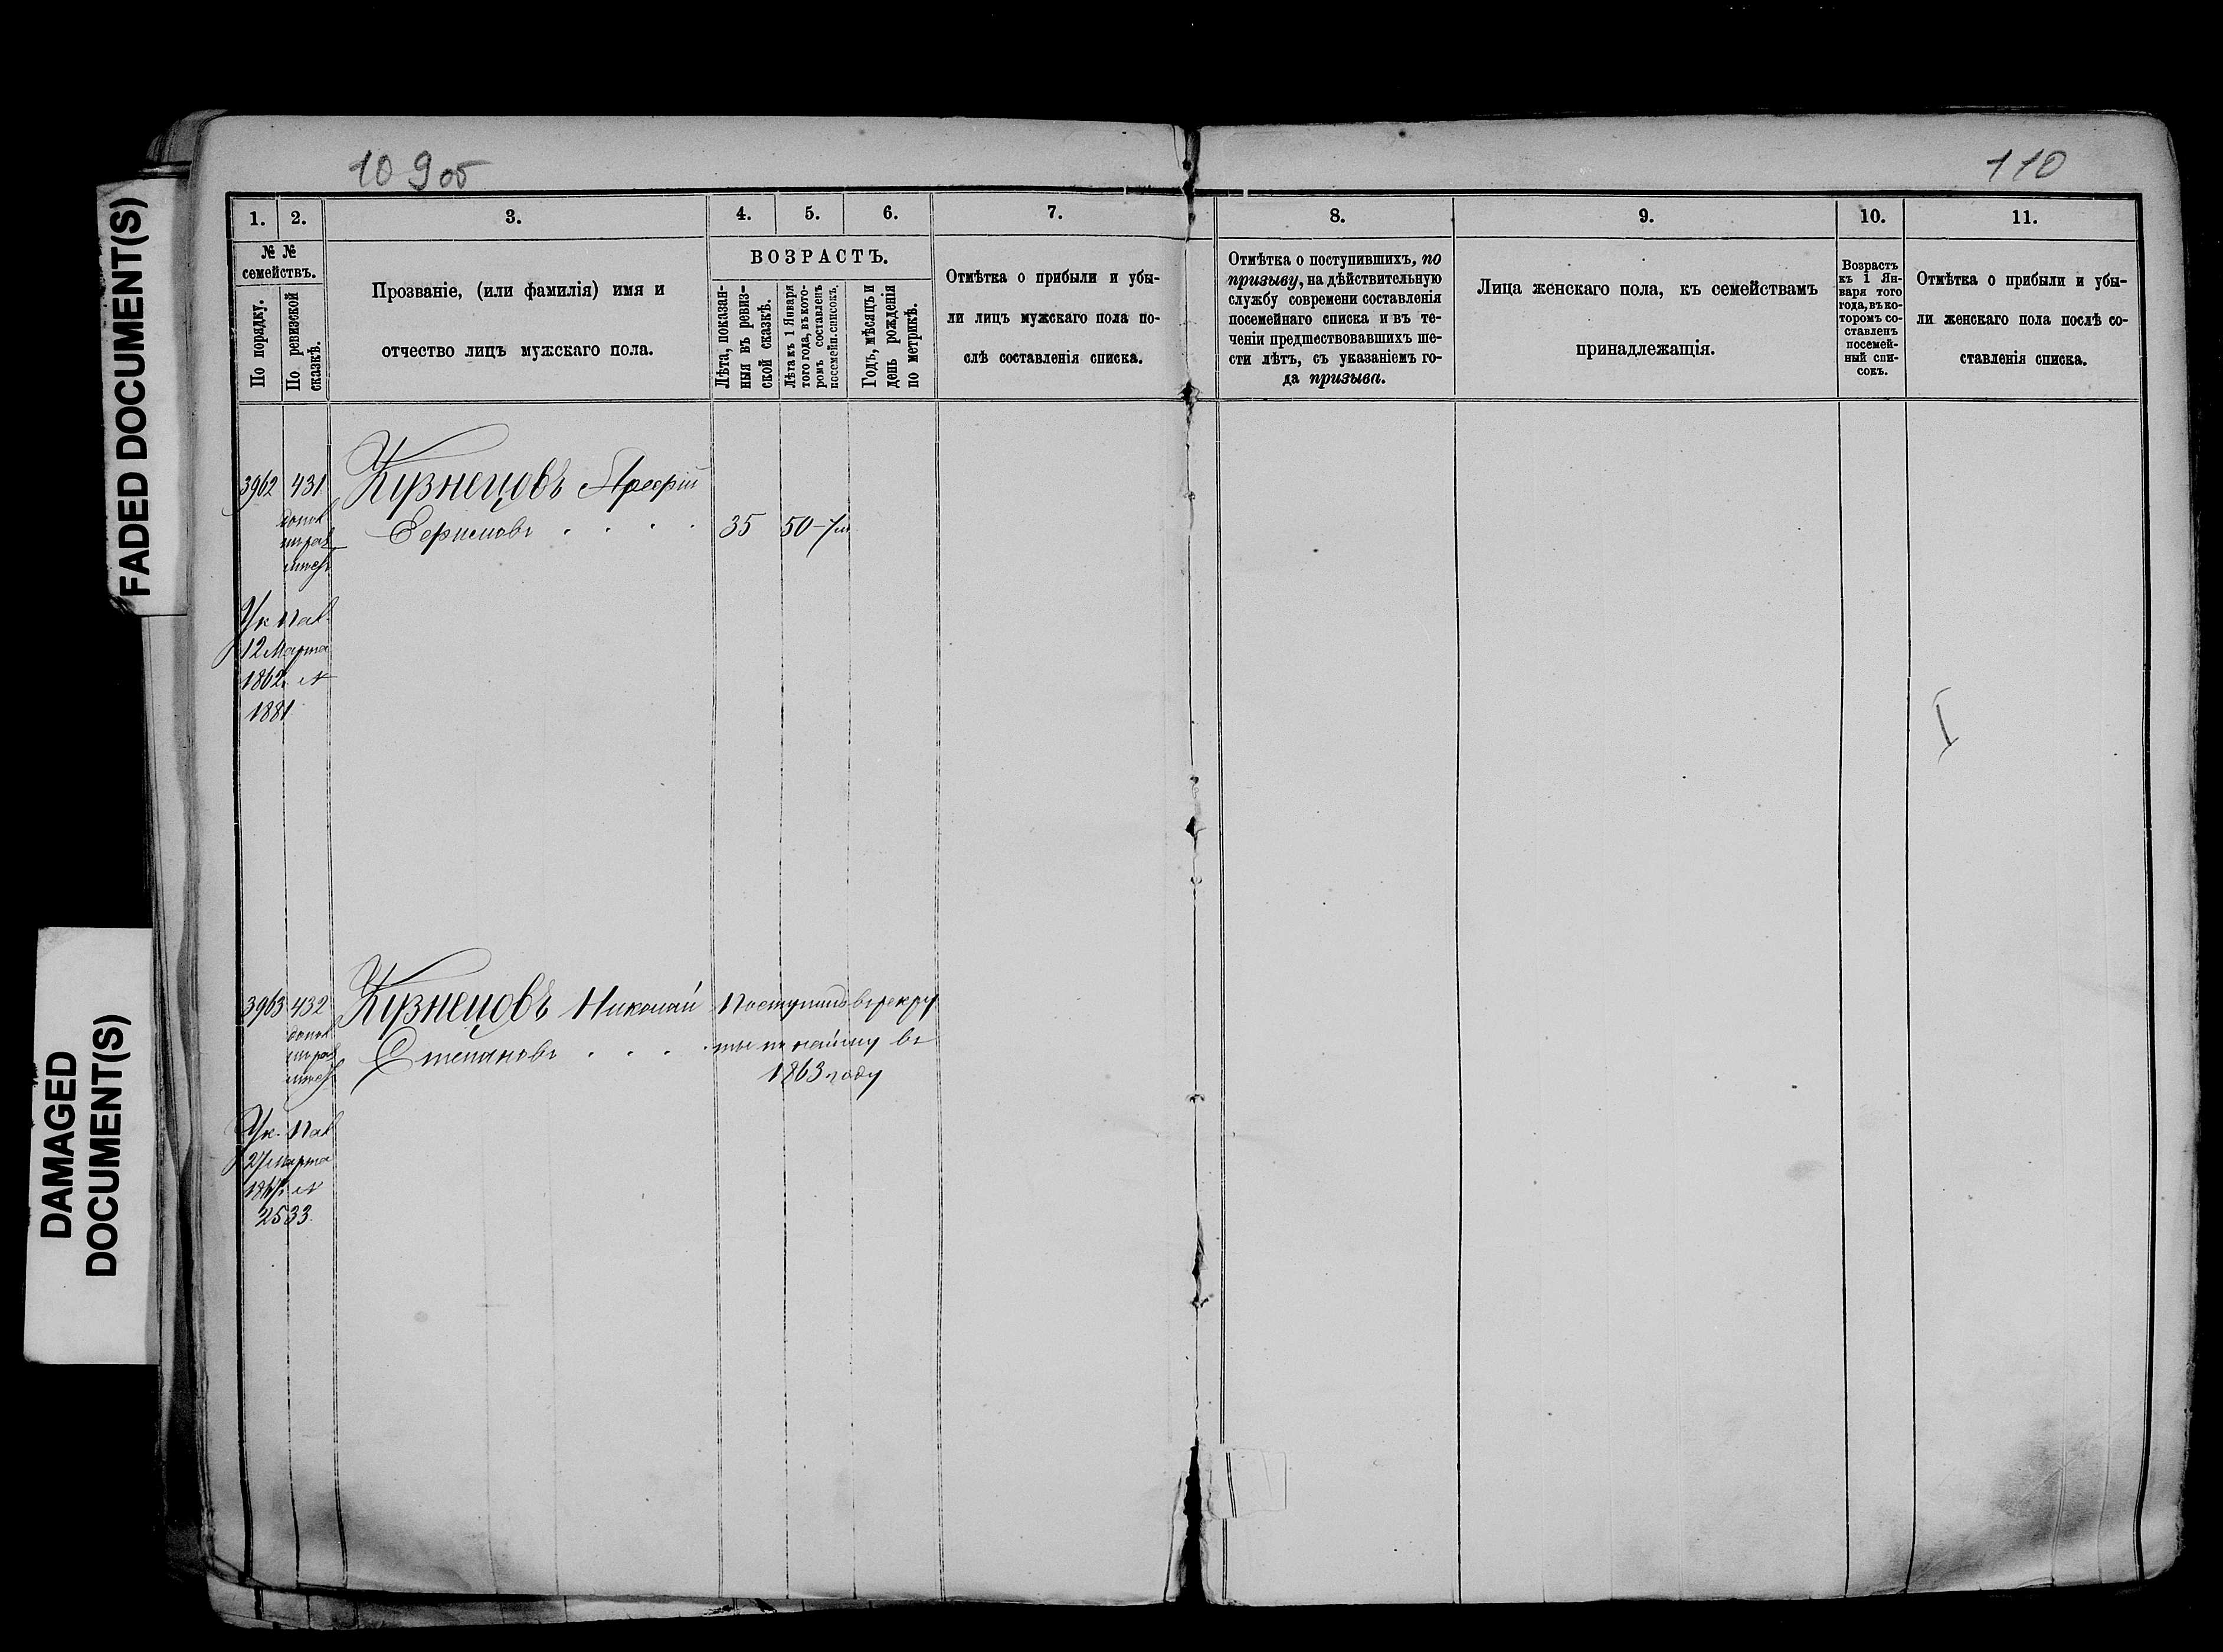 FADED DOCUMENT(S)
DAMAGED
DOCUMENT(S)
109 об
110
1. 2. 3. 4. 5. 6. 7. 8. 9. 10. 11.
№ №
семействъ.
По порядку.
По ревизской
сказкѣ.
Прозваніе, (или фамилія) имя и
отчество лицъ мужскаго пола.
ВОЗРАСТЪ.
Лѣта, показан-
ныя въ ревиз-
ской сказкѣ.
Лѣта къ 1 Января
того года, въ кото-
ромъ составленъ
посемейн. списокъ.
Годъ, мѣсяцъ и
день рожденія
по метрикѣ.
Отмѣтка о прибыли и убы-
ли лицъ мужскаго пола по-
слѣ составленія списка.
Отмѣтка о поступившихъ, по
призыву, на дѣйствительную
службу современи составленія
посемейнаго списка и въ те-
ченіи предшествовавшихъ ше-
сти лѣтъ, съ указаніемъ го-
да призыва.
Лица женскаго пола, къ семействамъ
принадлежащія.
Возрастъ
къ 1 Ян-
варя того
года, въ ко-
торомъ со-
ставленъ
посемей-
ный спи-
сокъ.
Отмѣтка о прибыли и убы-
ли женскаго пола послѣ со-
ставленія списка.
3962 431 Кузнецовъ
35 50
Ук. Пал.
12 Марта
1862 г. №
1881
3963 432 Кузнецовъ Николай Поступилъ въ рекру
Степановъ ты по найму въ
1863 году
Ук. Пал
27 Марта
№
2533.